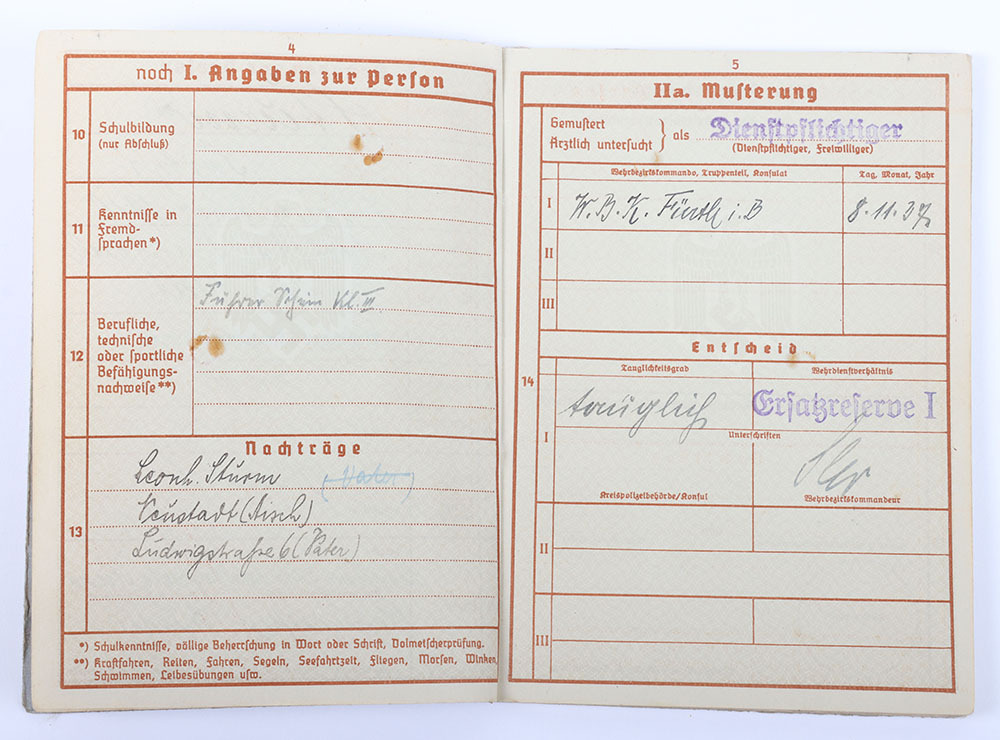 4
noch I. Angaben zur Person
10
Schulbildung
(nur Abschluß)
11
Kenntnisse in
Fremd-
sprachen*)
12
Berufliche,
technische
oder sportliche
Befähigungs-
nachweise**)
Führer Schein Kl. III
Nachträge
13
Leonh. Sturm (Vater)
Neustadt (Aisch)
Ludwigstraße 6 (Vater)
*) Schulkenntnisse, völlige Beherrschung in Wort oder Schrift, Dolmetscherprüfung.
**) Kraftfahren, Reiten, Fahren, Segeln, Seefahrtzeit, Fliegen, Morsen, Winken,
Schwimmen, Leibesübungen usw.
5
IIa. Musterung
Gemustert
Ärztlich untersucht } als Dienstpflichtiger
(Dienstpflichtiger, Freiwilliger)
Wehrbezirkskommando, Truppenteil, Konsulat
Tag, Monat, Jahr
I
W. B. K. Fürth i. B
8. 11. 37
II
III
Entscheid
14
Tauglichkeitsgrad
Wehrdienstverhältnis
I
tauglich
Ersatzreserve I
Unterschriften
Kreispolizeibehörde/Konsul
Wehrbezirkskommandeur
II
III